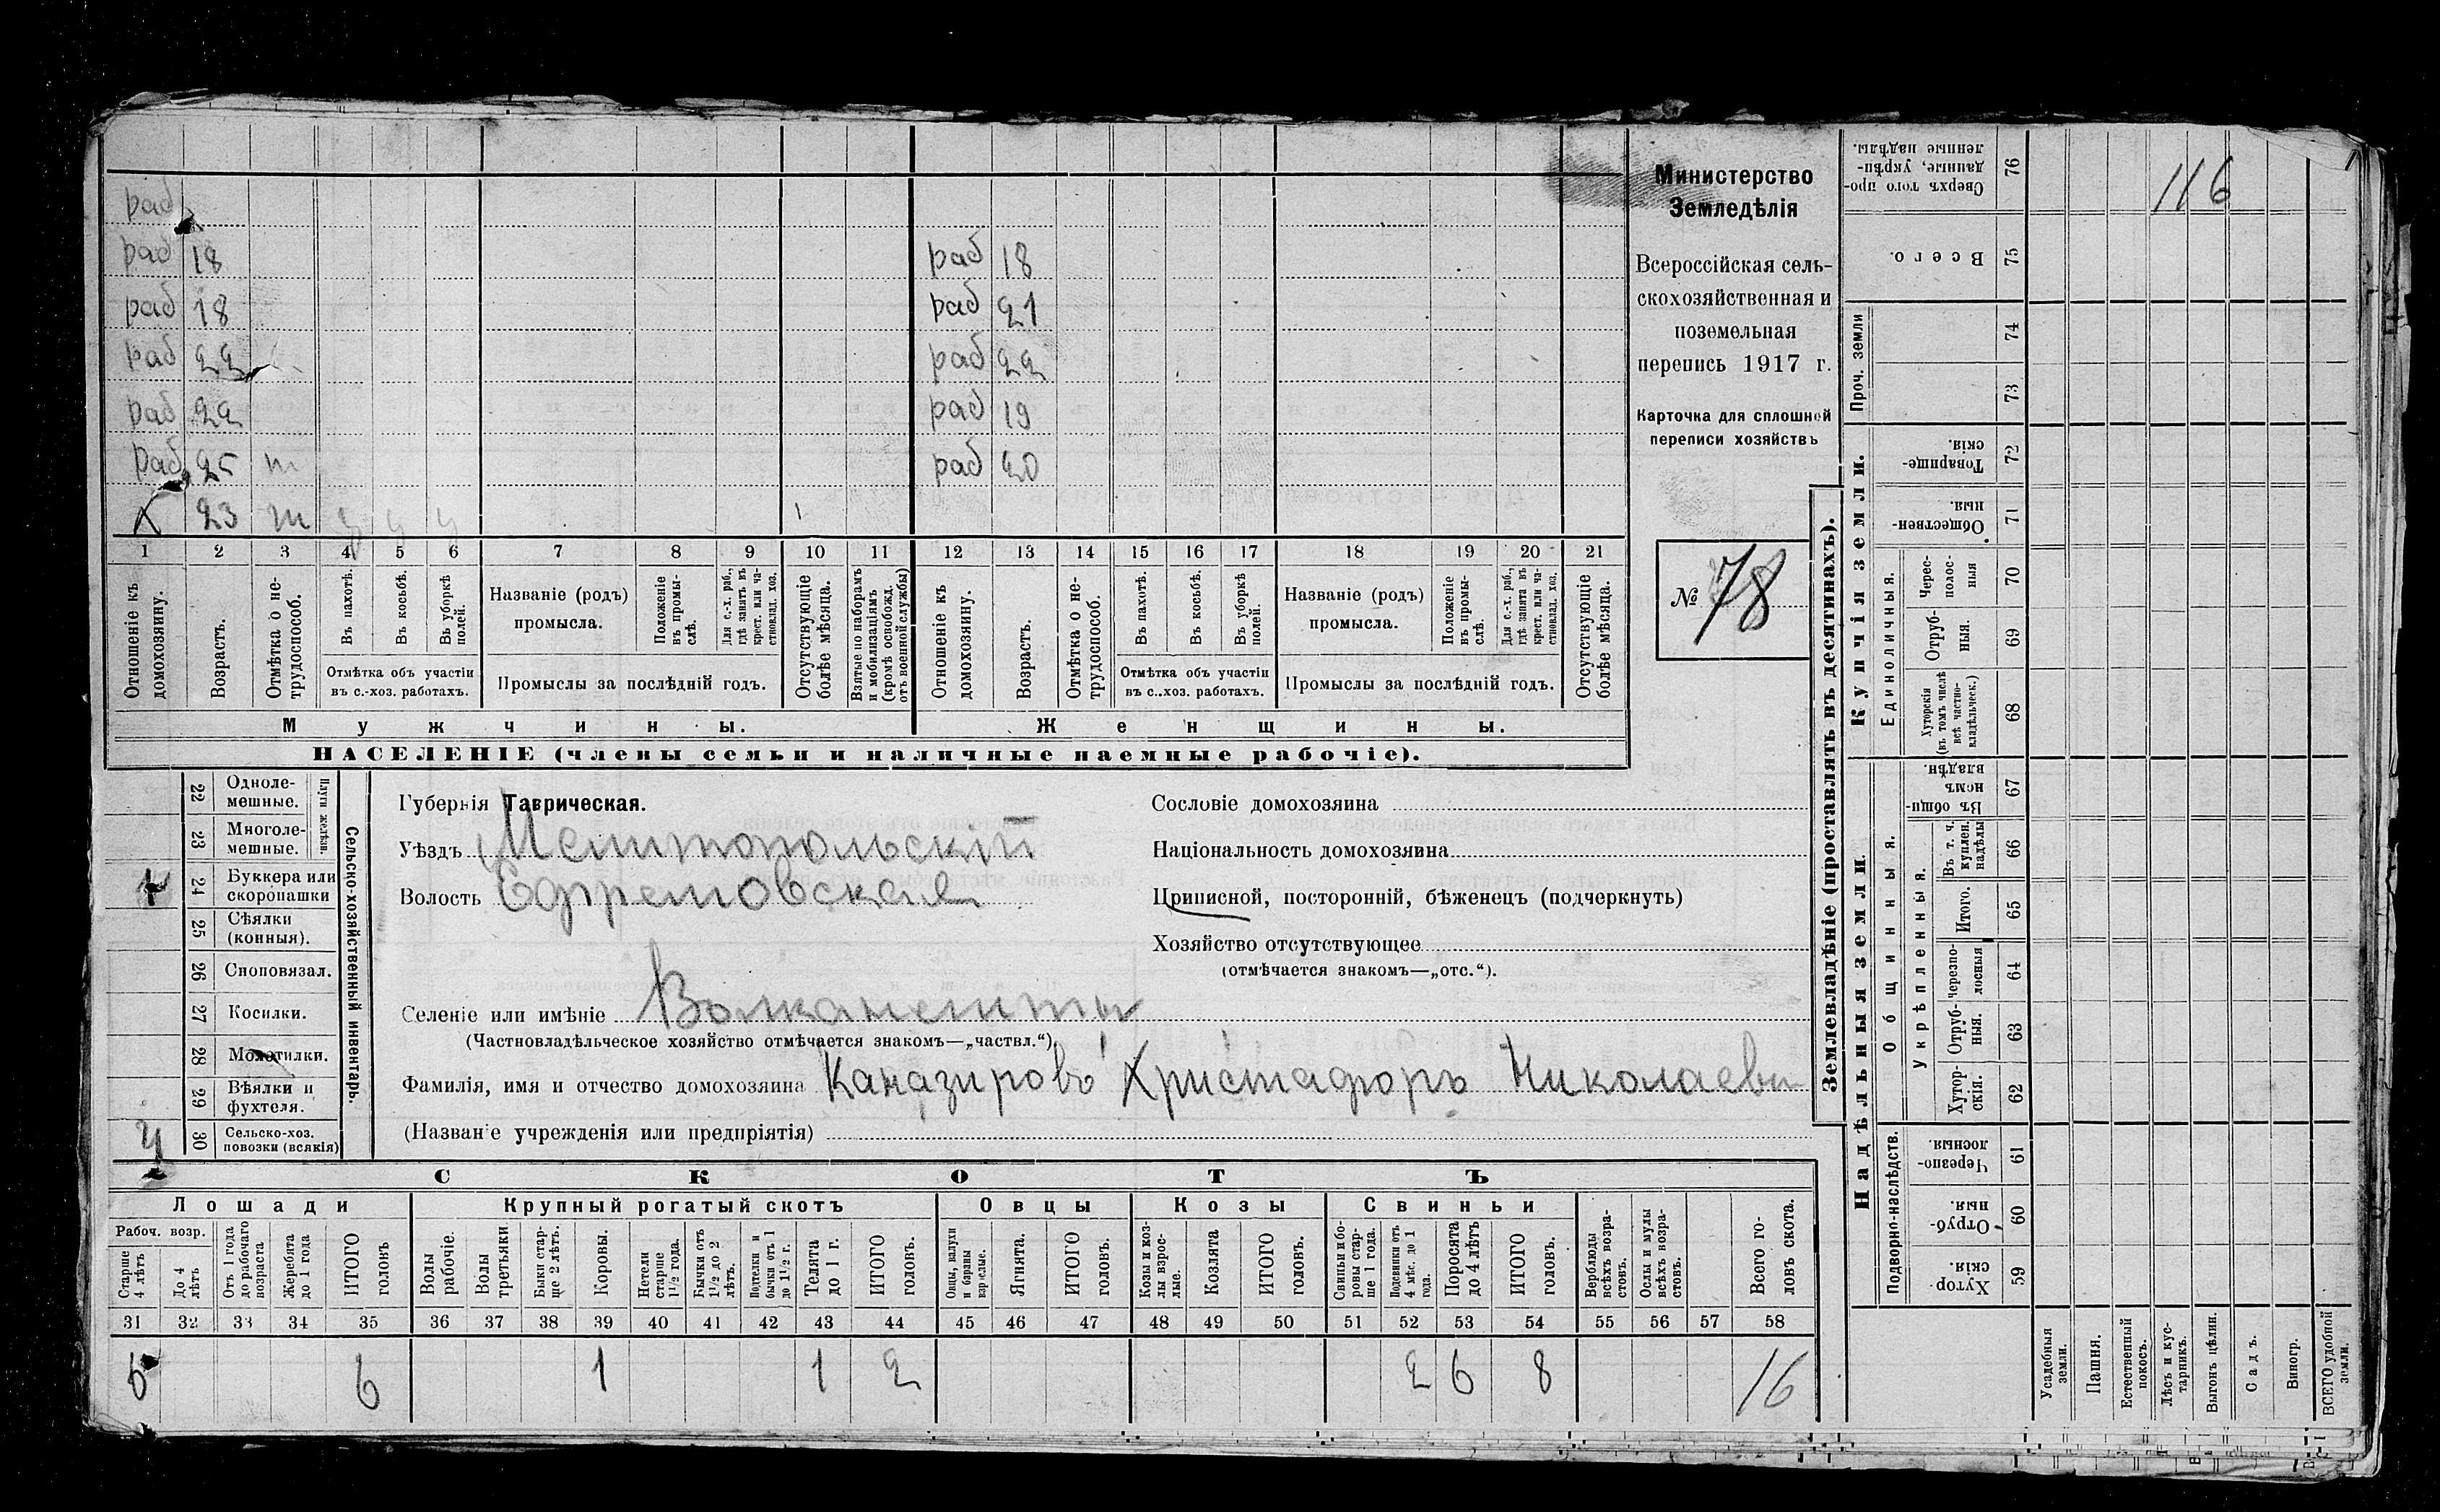 раб
раб 18 раб 18
раб 18 раб 21
раб 22 раб 22
раб 22 раб 19
раб 25 т раб 20
Х 23 т у у у 1
1 2 3 4 5 6 7 8 9 10 11 12 13 14 15 16 17 18 19 20 21
Отношеніе къ домохозяину.
Возрастъ.
Отмѣтка о не-
трудоспособ.
Въ пахотѣ.
Въ косьбѣ.
Въ уборкѣ
полей.
Отмѣтка объ участіи
въ с.-хоз. работахъ.
Названіе (родъ)
промысла.
Положеніе
въ промы-
слѣ.
Для с.-х. раб.,
гдѣ занятъ въ
крест. или ча-
стновлад. хоз.
Промыслы за послѣдній годъ.
Отсутствующіе
болѣе мѣсяца.
Взятые по наборамъ
и мобилизаціямъ
(кромѣ освобожд.
отъ военной службы)
Отношеніе къ
домохозяину.
Возрастъ.
Отмѣтка о не-
трудоспособ.
Въ пахотѣ.
Въ косьбѣ.
Въ уборкѣ
полей.
Отмѣтка объ участіи
въ с..хоз. работахъ.
Названіе (родъ)
промысла.
Положеніе
въ промы-
слѣ.
Для с.-х. раб.,
гдѣ занята въ
крест. или ча-
стновлад. хоз.
Промыслы за послѣдній годъ.
Отсутствующіе
болѣе мѣсяца.
Мужчины.
Женщины.
НАСЕЛЕНІЕ (члены семьи и наличные наемные рабочіе).
Министерство
Земледѣлія
Всероссійская сель-
скохозяйственная и
поземельная
перепись 1917 г.
Карточка для сплошной
переписи хозяйствъ
№ 78
22 Одноле-
мешные.
23 Многоле-
мешные.
Плуги желѣзн.
1 24 Буккера или
скоропашки
25 Сѣялки
(конныя).
26 Сноповязал.
27 Косилки.
28 Молотилки.
29 Вѣялки и
фухтеля.
30 Сельско-хоз.
повозки (всякія)
Сельско-хозяйственный инвентарь.
Губернія Таврическая.
Уѣздъ Мелитопольскій
Волость Ефремовская
Селеніе или имѣніе
(Частновладѣльческое хозяйство отмѣчается знакомъ—„частвл.“).
Фамилія, имя и отчество домохозяина Каназировъ Христафоръ Николаеви
(Названіе учрежденія или предпріятія)
Сословіе домохозяина
Національность домохозяина
Приписной, посторонній, бѣженецъ (подчеркнуть)
Хозяйство отсутствующее
(отмѣчается знакомъ—„отс.“).
СКОТЪ
Лошади Крупный рогатый скотъ Овцы Козы Свиньи
Рабоч. возр.
Старше
4 лѣтъ
До 4
лѣтъ
Отъ 1 года
до рабочаго
возраста
Жеребята
до 1 года
ИТОГО
головъ
Волы
рабочіе.
Волы
третьяки
Быки стар-
ше 2 лѣтъ.
Коровы.
Нетели
старше
1½ года.
Бычки отъ
1½ до 2
лѣтъ.
Подтелки и
бычки отъ 1
до 1½ г.
Телята
до 1 г.
ИТОГО
головъ.
Овцы, валухи
и бараны
взрослые.
Ягнята.
ИТОГО
головъ.
Козы и коз-
лы взрос-
лые.
Козлята
ИТОГО
головъ.
Свиньи и бо-
ровы стар-
ше 1 года.
Подсвинки отъ
4 мѣс. до 1
года.
Поросята
до 4 лѣтъ
ИТОГО
головъ.
Верблюды
всѣхъ возра-
стовъ.
Ослы и мулы
всѣхъ возра-
стовъ.
Всего го-
ловъ скота.
31 32 33 34 35 36 37 38 39 40 41 42 43 44 45 46 47 48 49 50 51 52 53 54 55 56 57 58
6 1 1 2 2 6 8 16
Землевладѣніе (проставлять въ десятинахъ).
116
Сверхъ того про-
данные, укрѣп-
ленные надѣлы.
76
Всего.
75
Проч. земли
74
73
Купчія земли.
Товарище-
скія.
72
Обществен-
ныя.
71
Единоличныя.
Черес-
полос-
ныя
70
Отруб-
ныя.
69
Хуторскія
(въ томъ числѣ
всѣ частно-
владѣльческ.)
68
Надѣльныя земли.
Общинныя.
Въ общин-
номъ
владѣн.
67
Укрѣпленныя.
Въ т. ч.
куплен.
надѣлы
66
Итого.
65
Черезпо-
лосныя
64
Отруб-
ныя.
63
Хутор-
скія.
62
Подворно-наслѣдств.
Черезпо-
лосныя.
61
Отруб-
ныя.
60
Хутор-
скія.
59
Усадебныя
земли.
Пашня.
Естественный
покосъ.
Лѣсъ и кус-
тарникъ.
Выгонъ цѣлин.
Садъ.
Виногр.
ВСЕГО удобной
земли.